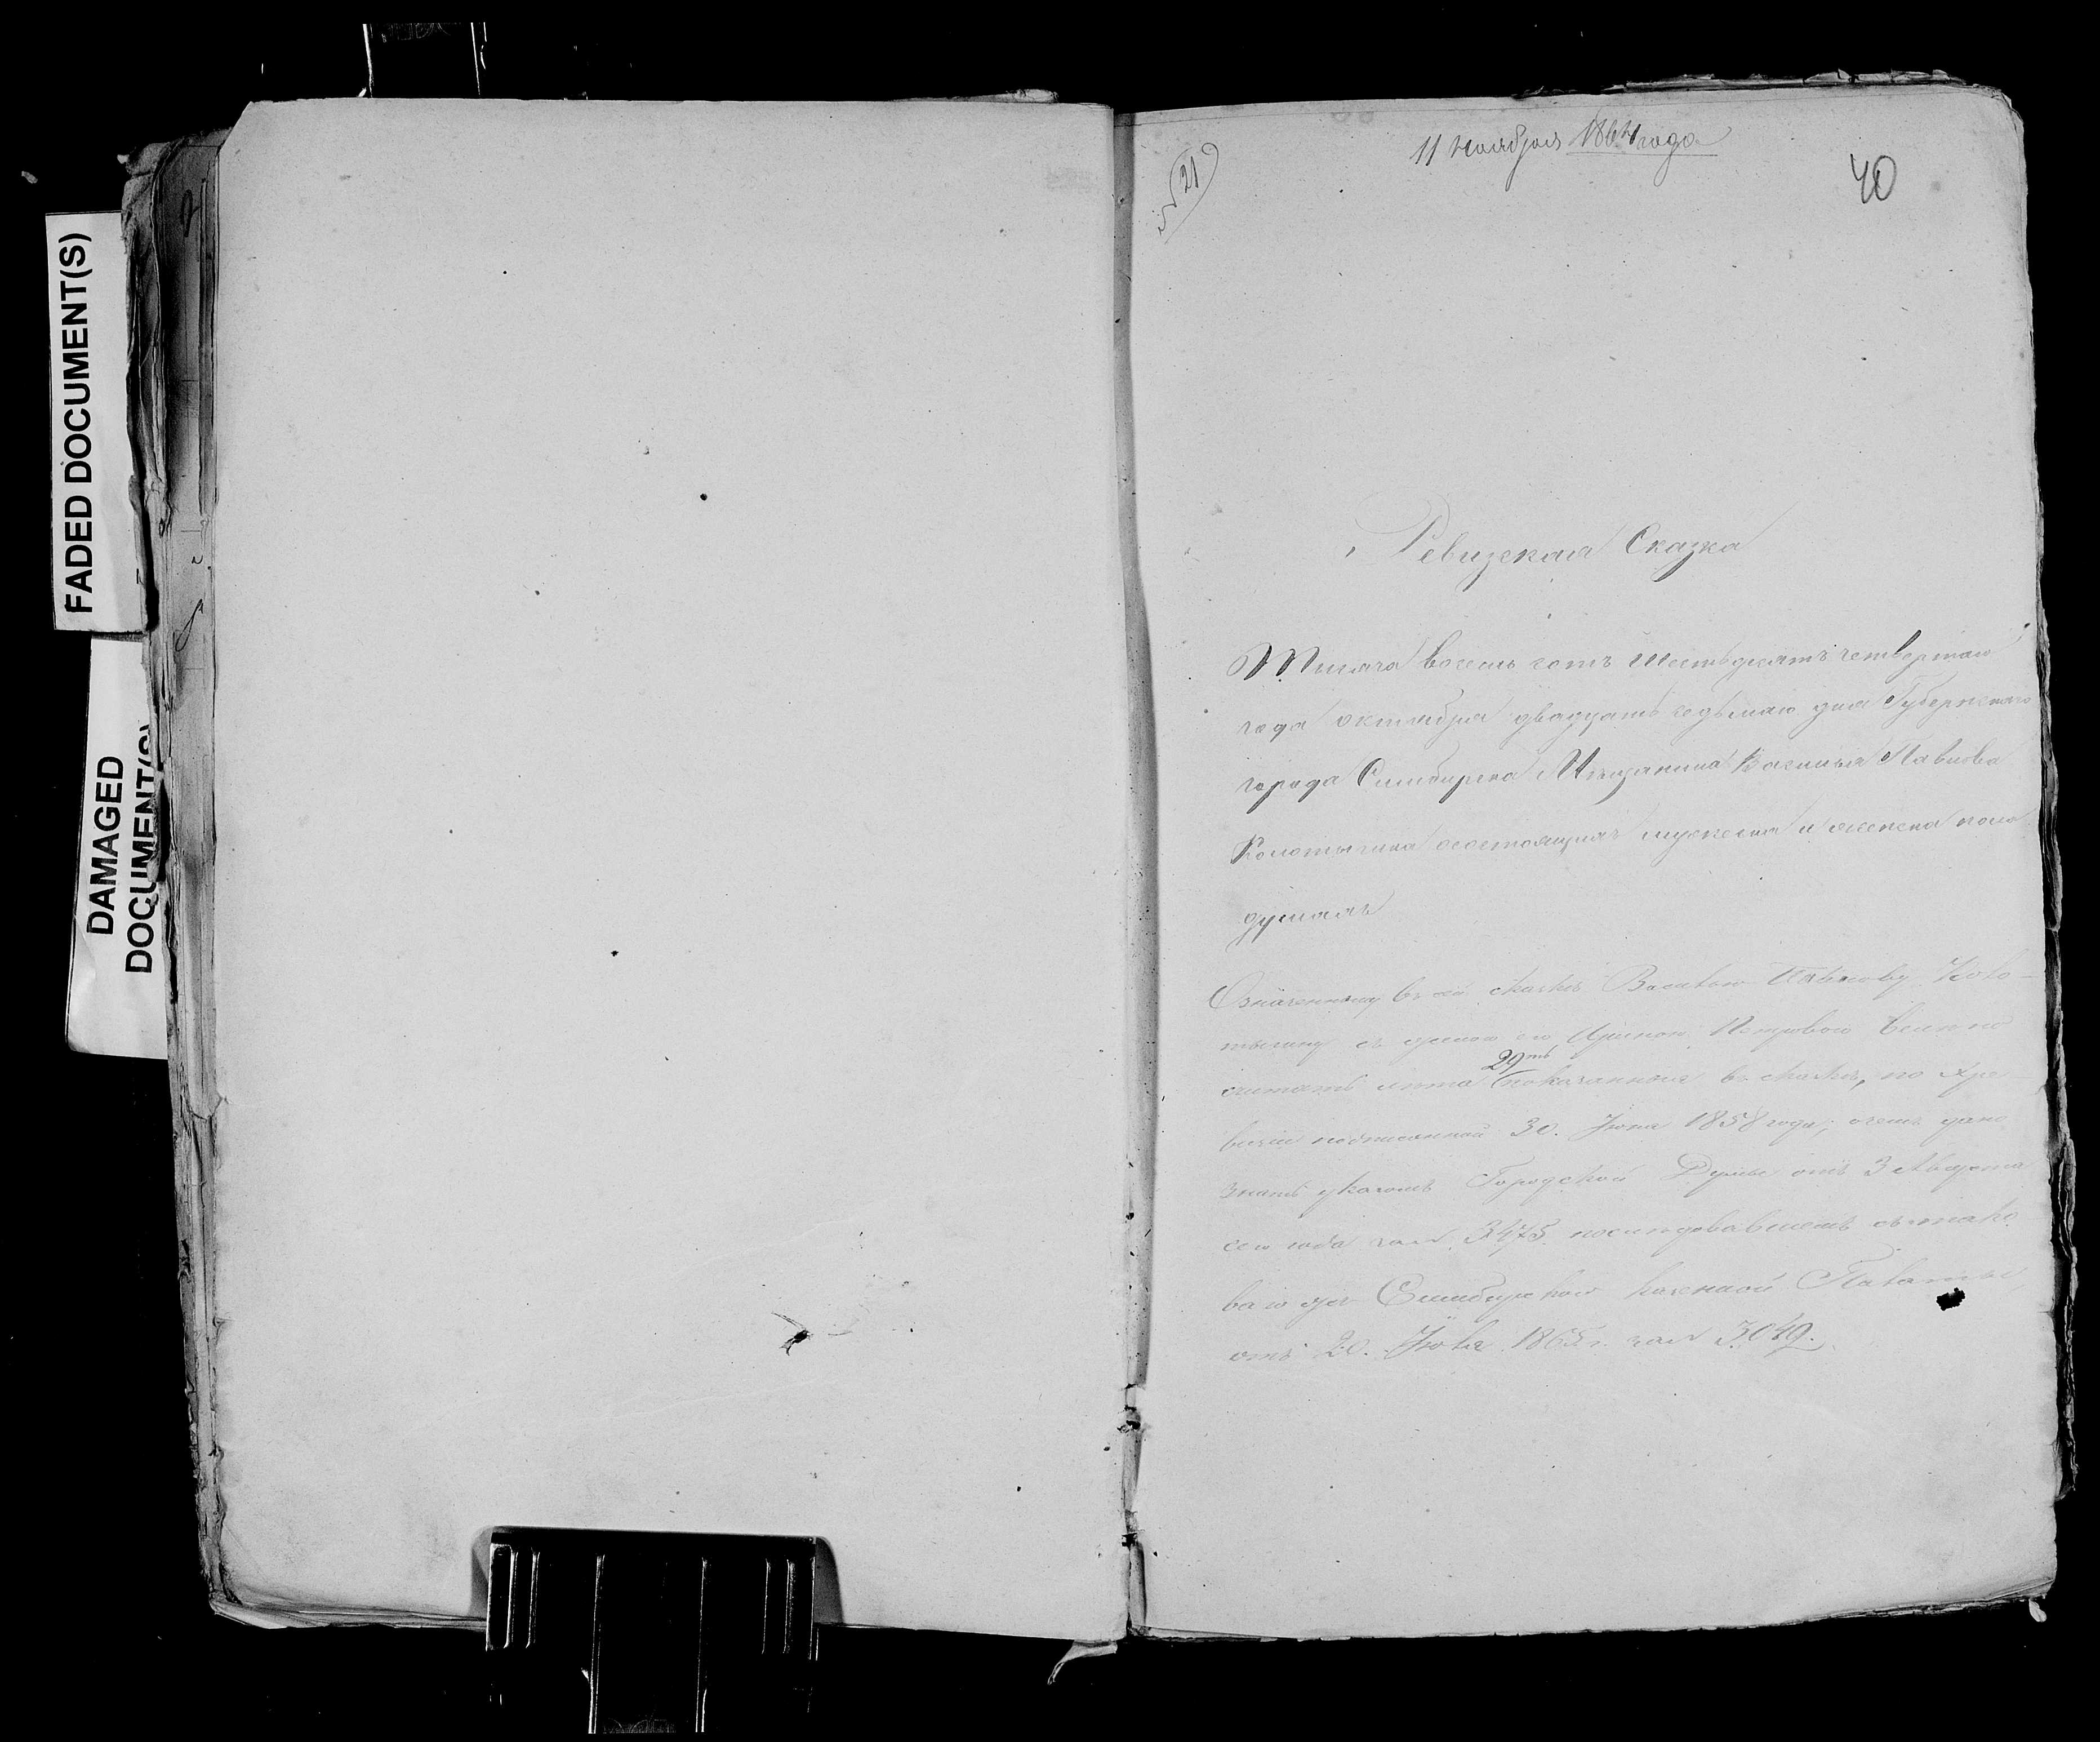 FADED DOCUMENT(S)
DAMAGED
DOCUMENT(S)
11 Ноября 1864 года
№ 21
40
Ревизская Сказка
Тысяча восемь сотъ шестьдесятъ четвертаго
года октября двадцать седьмаго дня Губернскаго
города Симбирска Мещанина Василья Павлова
Колотыгина состоящихъ мужеска и женска пола
душахъ
Означенному въ сей сказкѣ Василью Павлову Коло-
тыгину съ женою его Петровою велено
считать лѣта показанныя въ сказкѣ, по Хре-
29ть
визіи подписанной 30. Іюня 1858 года; о чемъ дано
знать указомъ Городской Думѣ отъ 3 Августа
сего года за № 3475 последовавшемъ
изъ Симбирской казенной Палаты
отъ 20. Іюля 1865 г. за № 3049.